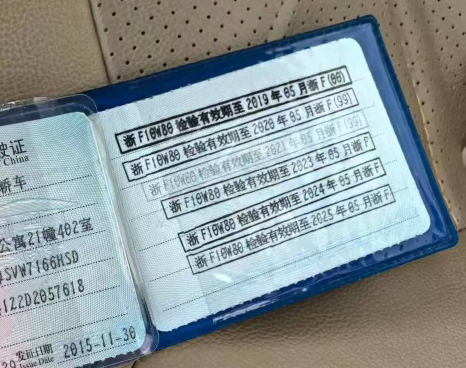 驶证
China
轿车
公寓21幢402室
SVW7166HSD
122D2057618
发证日期
Issue Date
2015-11-30
浙F10W80 检验有效期至2019年05月浙F(00)
浙F10W80 检验有效期至2020年05月浙F(99)
浙F10W80 检验有效期至2021年05月浙F(99)
浙F10W80 检验有效期至2023年05月浙F
浙F10W80 检验有效期至2024年05月浙F
浙F10W80 检验有效期至2025年05月浙F